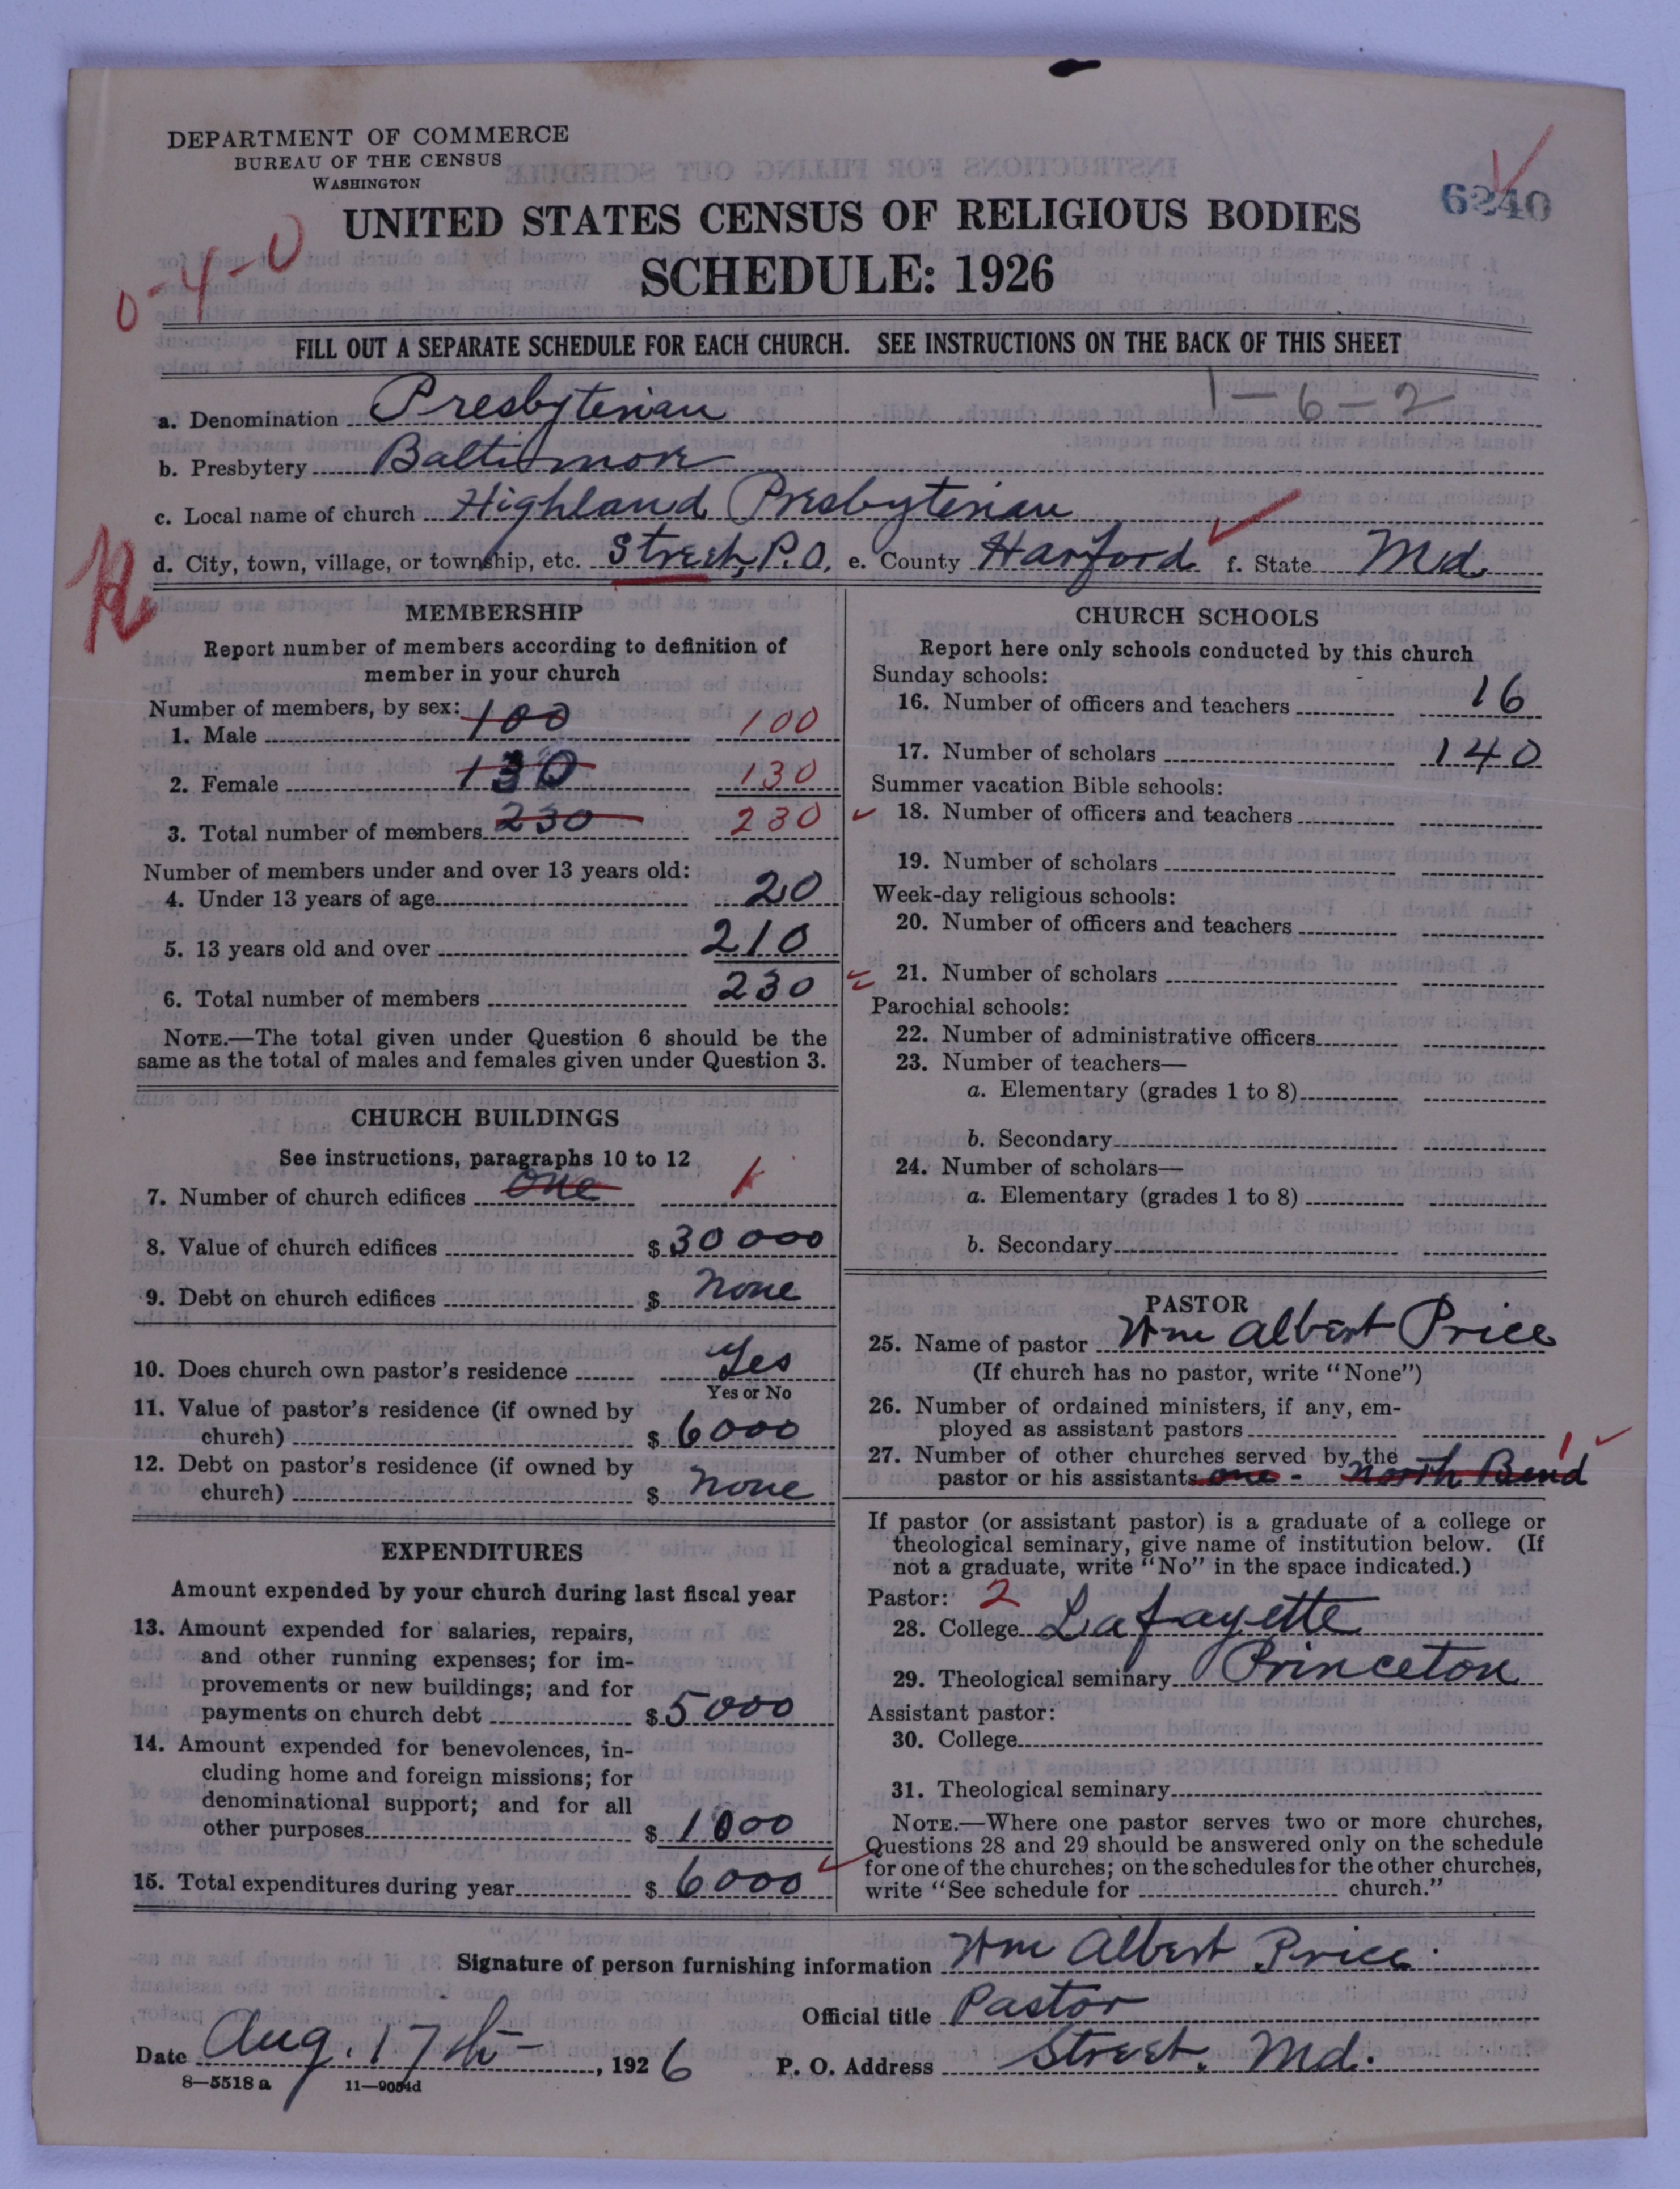 DEPARTMENT OF COMMERCE
BUREAU OF THE CENSUS
WASHINGTON
6240
UNITED STATES CENSUS OF RELIGIOUS BODIES
SCHEDULE: 1926
0-4-0
FILL OUT A SEPARATE SCHEDULE FOR EACH CHURCH. SEE INSTRUCTIONS ON THE BACK OF THIS SHEET
1-6-2
a. Denomination Presbyterian
b. Presbytery Baltimore
c. Local name of church Highland Presbyterian
d. City, town, village, or township, etc. Street, P.O. e. County Harford f. State Md.
MEMBERSHIP
Report number of members according to definition of
member in your church
Number of members, by sex:
1. Male 100 100
2. Female 130 130
3. Total number of members 230 230
Number of members under and over 13 years old:
4. Under 13 years of age 20
5. 13 years old and over 210
6. Total number of members 230
NOTE.—The total given under Question 6 should be the
same as the total of males and females given under Question 3.
CHURCH BUILDINGS
See instructions, paragraphs 10 to 12
7. Number of church edifices One 1
8. Value of church edifices $ 30000
9. Debt on church edifices $ None
10. Does church own pastor's residence Yes
Yes or No
11. Value of pastor's residence (if owned by
church) $ 6000
12. Debt on pastor's residence (if owned by
church) $ None
EXPENDITURES
Amount expended by your church during last fiscal year
13. Amount expended for salaries, repairs,
and other running expenses; for im-
provements or new buildings; and for
payments on church debt $ 5000
14. Amount expended for benevolences, in-
cluding home and foreign missions; for
denominational support; and for all
other purposes $ 1000
15. Total expenditures during year $ 6000
CHURCH SCHOOLS
Report here only schools conducted by this church
Sunday schools:
16. Number of officers and teachers 16
17. Number of scholars 140
Summer vacation Bible schools:
18. Number of officers and teachers
19. Number of scholars
Week-day religious schools:
20. Number of officers and teachers
21. Number of scholars
Parochial schools:
22. Number of administrative officers
23. Number of teachers—
a. Elementary (grades 1 to 8)
b. Secondary
24. Number of scholars—
a. Elementary (grades 1 to 8)
b. Secondary
PASTOR
25. Name of pastor Wm Albert Price
(If church has no pastor, write "None")
26. Number of ordained ministers, if any, em-
ployed as assistant pastors
27. Number of other churches served by the 1
pastor or his assistants one - North Bend
If pastor (or assistant pastor) is a graduate of a college or
theological seminary, give name of institution below. (If
not a graduate, write "No" in the space indicated.)
Pastor: 2
28. College Lafayette
29. Theological seminary Princeton
Assistant pastor:
30. College
31. Theological seminary
NOTE.—Where one pastor serves two or more churches,
Questions 28 and 29 should be answered only on the schedule
for one of the churches; on the schedules for the other churches,
write "See schedule for church."
Signature of person furnishing information Wm Albert Price.
Official title Pastor
Date Aug. 17th, 1926 P. O. Address Street. Md.
8—5518 a 11—9054d